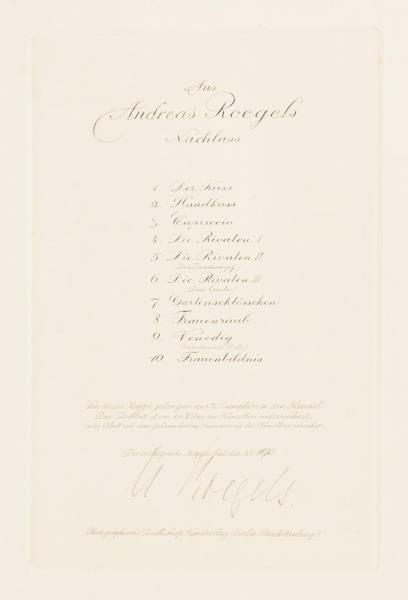 Aus
Andreas Roegels
Nachlass
1 Der Kuss
2 Handkuss
3 Capriccio
4 Die Rivalen I
5 Die Rivalen II
6 Die Rivalen III
Das Ende
7 Gartenschlösschen
8 Frauenraub
9 Venedig
10 Frauenbildnis
Von dieser Mappe gelangen nur Exemplare in den Handel.
Das Titelblatt ist von der Witwe des Künstlers unterzeichnet,
jedes Blatt mit dem des Künstlers versehen.
Die vorliegende Mappe hat die No
Roegels.
Photographische Gesellschaft, Berlin-Charlottenburg